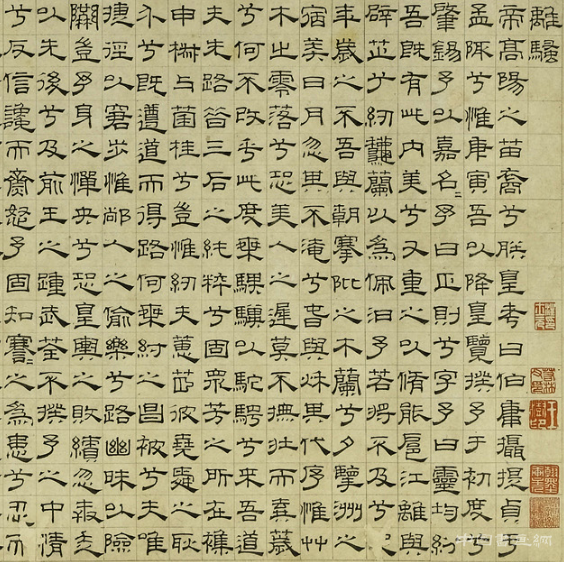 離騷
帝高陽之苗裔兮朕皇考曰伯庸攝提貞于
孟陬兮惟庚寅吾以降皇覽揆予于初度兮
肇錫予以嘉名=予曰正則兮字予曰靈均紛
吾既有此內美兮又重之以脩能扈江離與
辟芷兮紉龝蘭以為佩汨予若將不及兮恐
年歲之不吾與朝搴阰之木蘭兮夕擥洲之
宿莽日月忽其不淹兮春與秋其代序惟艸
木之零落兮恐美人之遲莫不撫壯而棄穢
兮何不改乎此度乘騏驥以駝騁兮來吾道
夫先路昔三后之純粹兮固眾芳之所在雜
申椒與菌桂兮豈惟紉夫蕙茝彼堯舜之耿
介兮既遵道而得路何桀紂之昌被兮夫唯
捷徑以窘步惟人之偷樂兮路幽昧以險
豈予身之憚央兮恐皇輿之敗績忽奔走
以先後兮及前王之踵武荃不揆予之中情
兮反信讒而齌怒予固知謇=之為患兮忍而